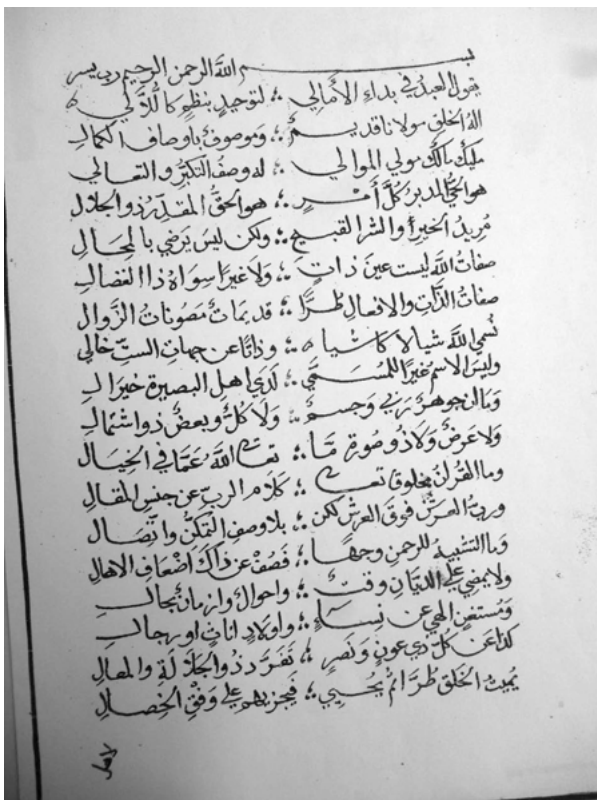 بسم الله الرحمن الرحيم رب يسر
يقول العبد في بداء الأمالي ؞ لتوحيد بنظم كاللآلي
اله الخلق مولانا قديم ؞ وموصوف باوصاف الكمال
مليك مالك مولي الموالي ؞ له وصف التكبر والتعالي
هو الحي المدبر كل أمر ؞ هو الحق المقدر ذو الجلال
مريد الخير والشر القبيح ؞ ولكن ليس يرضي بالمحال
صفات الله ليست عين ذات ؞ ولا غيرا سواه ذا انفصال
صفات الذات والافعال طرا ؞ قديمات مصونات الزوال
نسمي الله شيا لا كاشياه ؞ وذاتا عن جهات الست خالي
وليس الاسم غيرا للمسمي ؞ لدي اهل البصيرة خير ال
وما ان جوهر ربي وجسم ؞ ولا كل وبعض ذو اشتمال
ولا عرض ولا ذو صورة ما ؞ تعالى الله عما في الخيال
وما القران مخلوق تعالى ؞ كلام الرب عن جنس المقال
ورب العرش فوق العرش لكن ؞ بلا وصف التمكن واتصال
وما التشبيه للرحمن وجها ؞ فصن عن ذاك اضعاف الاهال
ولا يمضي علي الديان وقت ؞ واحوال وازمان بحال
ومستغن الهي عن نساء ؞ واولاد اناث او رجال
كذا عن كل ذي عون ونصر ؞ تفرد ذو الجلالة والمعال
يميت الخلق طرا ثم يحيي ؞ فيجزيهم علي وفق الخصال
لاهل